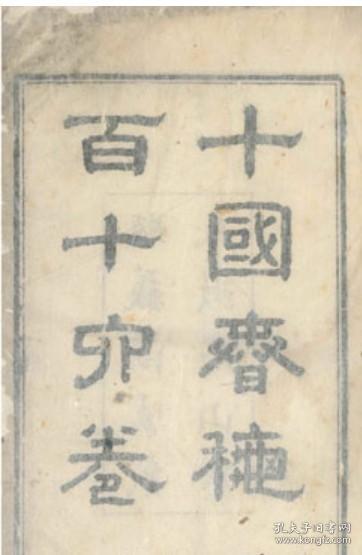 十國春穐
百十六卷
孔夫子旧书网
www.kongfz.com